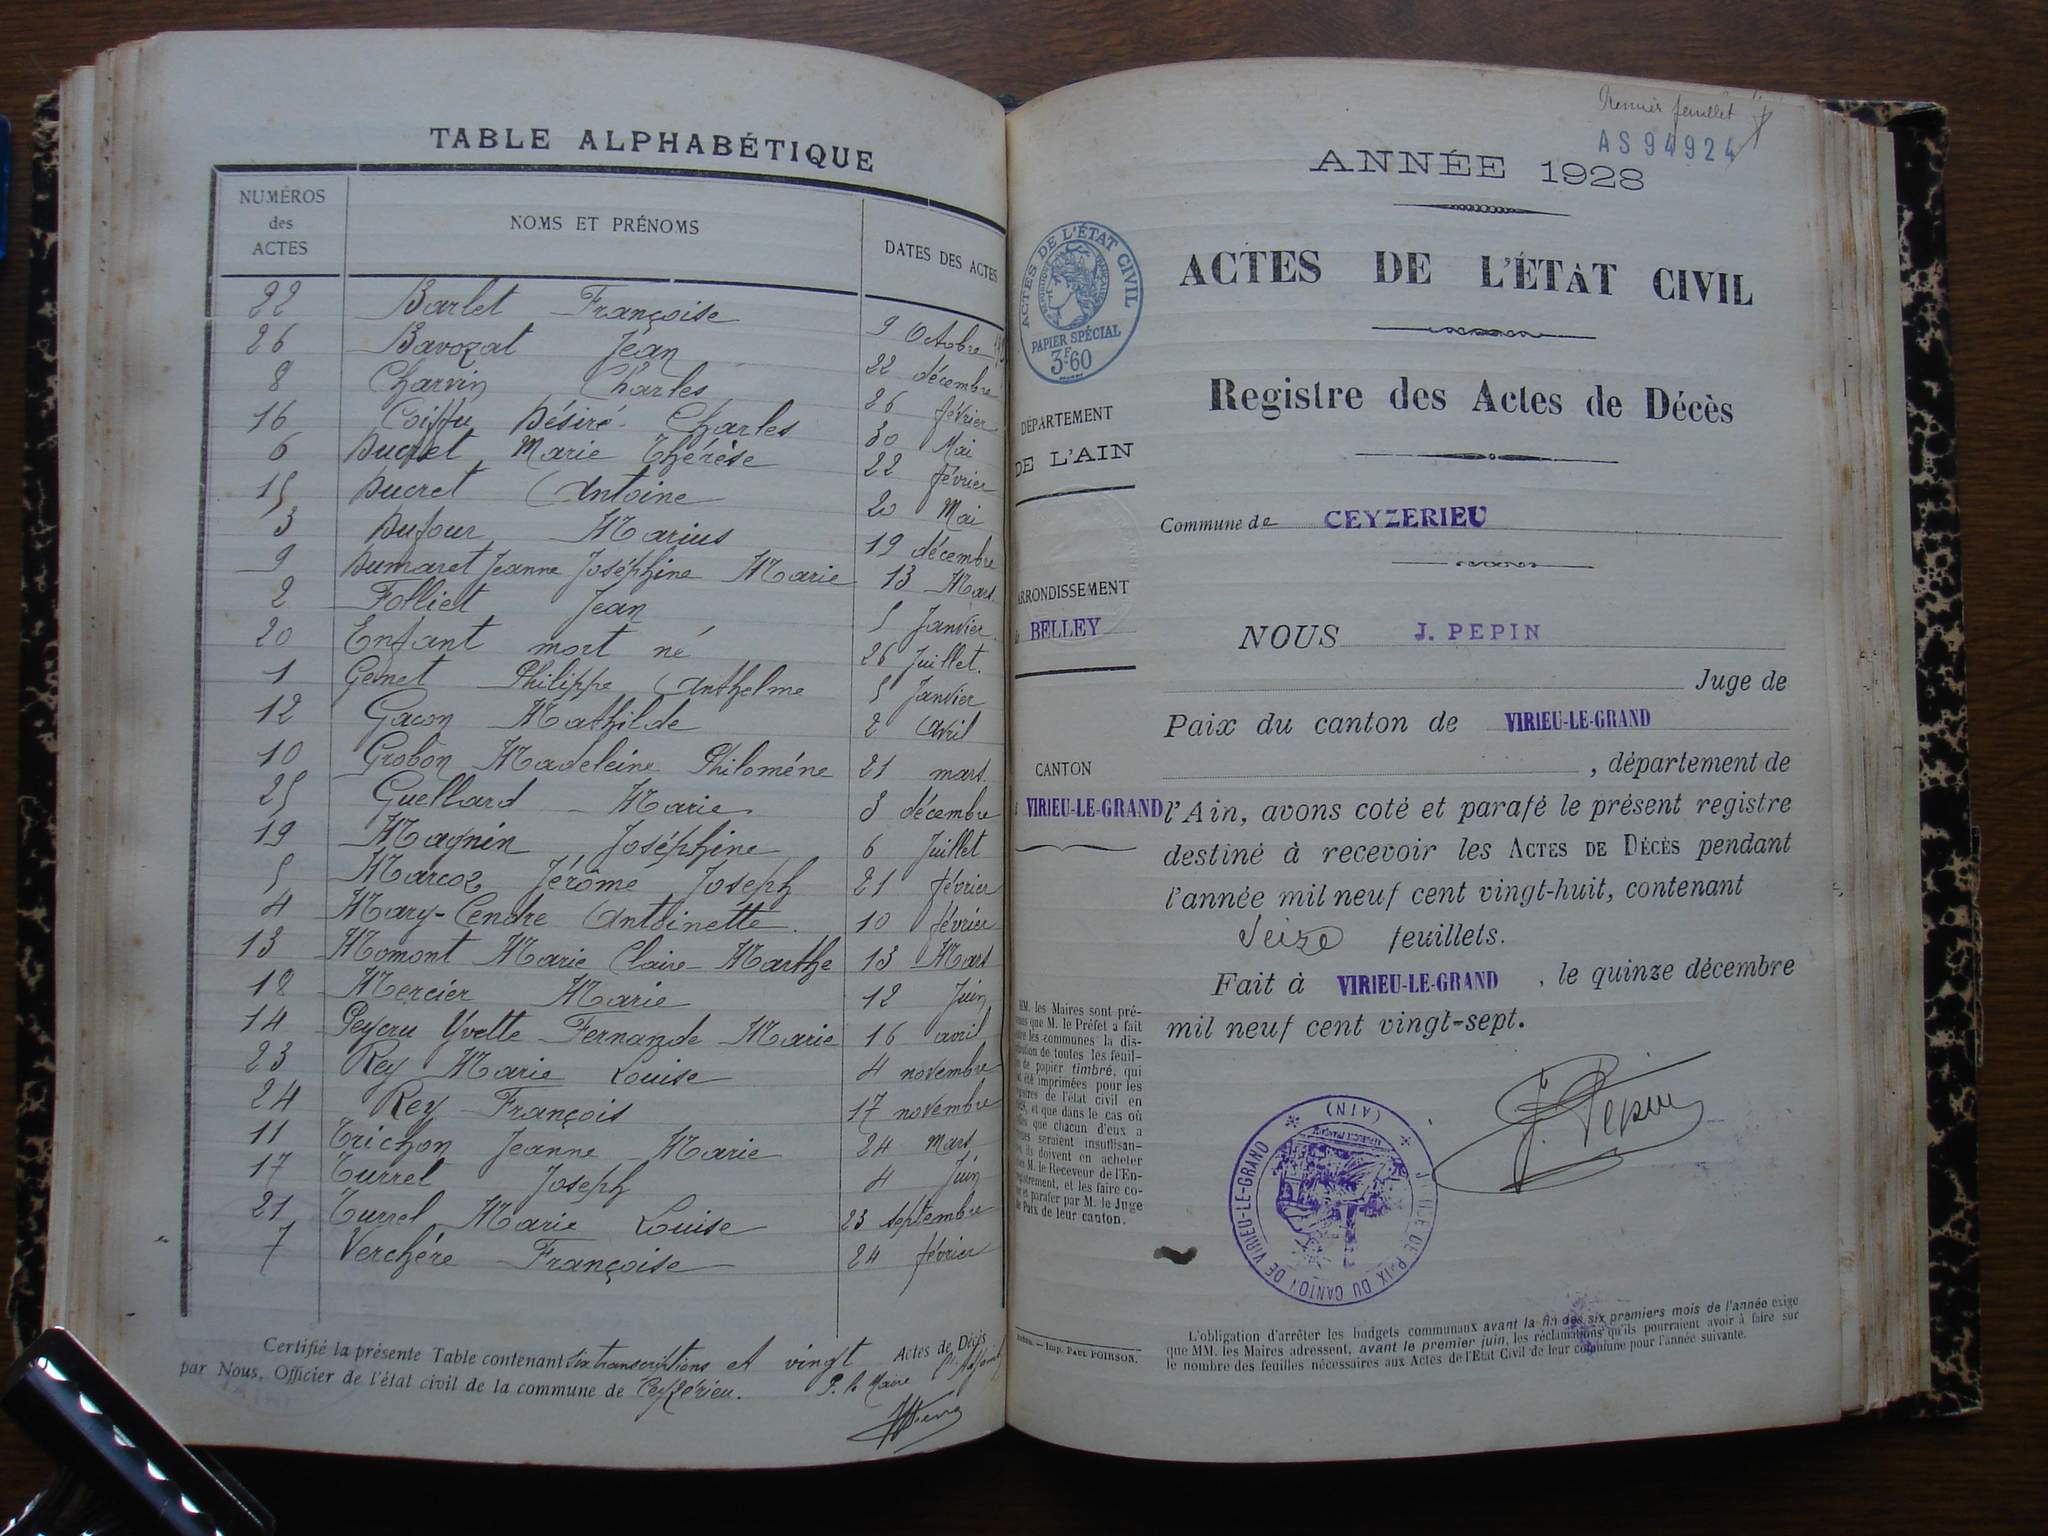 TABLE ALPHABÉTIQUE
NUMÉROS des ACTES NOMS ET PRÉNOMS DATES DES ACTES
22 Barlet Françoise 9 Octobre
26 Bavozat Jean 22 décembre
8 Charvin Charles 26 février
16 Coiffu Désiré Charles 30 Mai
6 Ducret Marie Thérèse 22 février
15 Ducret Antoine 20 Mai
3 Dufour Marius 19 décembre
9 Dumaret Jeanne Joséphine Marie 13 Mars
2 Folliet Jean 5 Janvier
20 Enfant mort né 26 Juillet.
1 Genet Philippe Anthelme 5 Janvier
12 Gacon Mathilde 2 avril
10 Grobon Madeleine Philomène 21 mars
25 Guellard Marie 8 décembre
19 Magnin Joséphine 6 Juillet
5 Marcoz Jérôme Joseph 21 février
4 Mary-Cendre Antoinette. 10 février
13 Momont Marie Claire Marthe 13 Mars
18 Mercier Marie 12 Juin
14 Peycru Yvette Fernande Marie 16 avril
23 Rey Marie Louise 4 novembre
24 Rey François 17 novembre
11 Trichon Jeanne Marie 24 mars
17 Turrel Joseph 4 Juin
21 Turrel Marie Louise 23 septembre
7 Verchère Françoise 24 février
Certifié la présente Table contenant six transcriptions et vingt Actes de Décès
par Nous, Officier de l'état civil de la commune de Ceyzérieu. P. le Maire
Premier feuillet
AS94924
ANNÉE 1928
ACTES DE L'ÉTAT CIVIL
PAPIER SPÉCIAL
3F.60
ACTES DE L'ÉTAT CIVIL
Registre des Actes de Décès
DÉPARTEMENT
DE L'AIN
Commune de CEYZERIEU
ARRONDISSEMENT
BELLEY
NOUS J. PEPIN
Juge de
Paix du canton de VIRIEU-LE-GRAND
, département de
CANTON
VIRIEU-LE-GRAND
l'Ain, avons coté et parafé le présent registre
destiné à recevoir les ACTES DE DÉCÈS pendant
l'année mil neuf cent vingt-huit, contenant
Seize feuillets.
Fait à VIRIEU-LE-GRAND, le quinze décembre
mil neuf cent vingt-sept.
J. Pepin
MM. les Maires sont pré-
que M. le Préfet a fait
les communes la dis-
de toutes les feuil-
de papier timbré, qui
été imprimées pour les
de l'état civil en
et que dans le cas où
que chacun d'eux a
seraient insuffisan-
ils doivent en acheter
M. le Receveur de l'En-
et les faire co-
et parafer par M. le Juge
de Paix de leur canton.
JUSTICE DE PAIX DU CANTON DE VIRIEU-LE-GRAND (AIN)
Imp. PAUL POIRSON.
L'obligation d'arrêter les budgets communaux avant la fin des six premiers mois de l'année exige
que MM. les Maires adressent, avant le premier juin, les réclamations qu'ils pourraient avoir à faire sur
le nombre des feuilles nécessaires aux Actes de l'Etat Civil de leur commune pour l'année suivante.